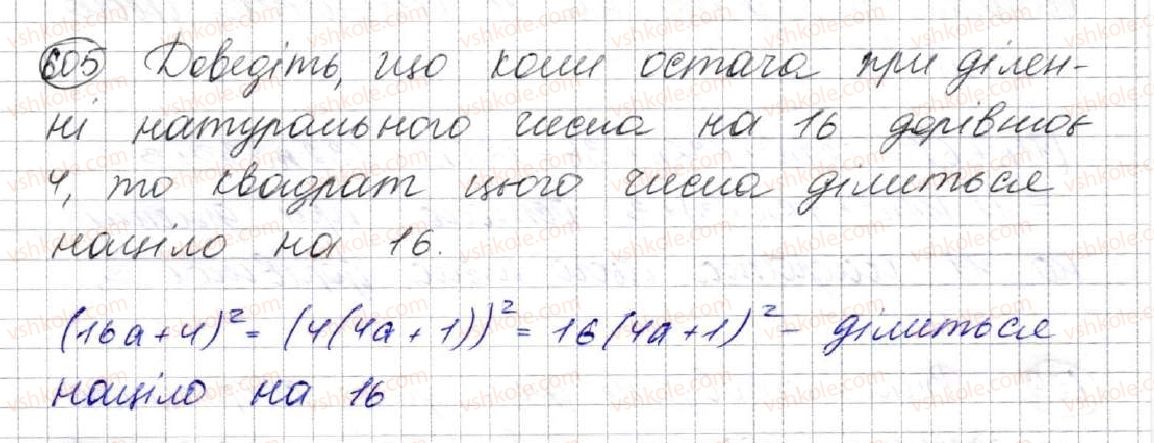 605 Доведіть, що коли остача при ділен-
ні натурального числа на 16 дорівнює
4, то квадрат цього числа ділиться
націло на 16.
(16a+4)² = (4(4a+1))² = 16(4a+1)² - ділиться
націло на 16